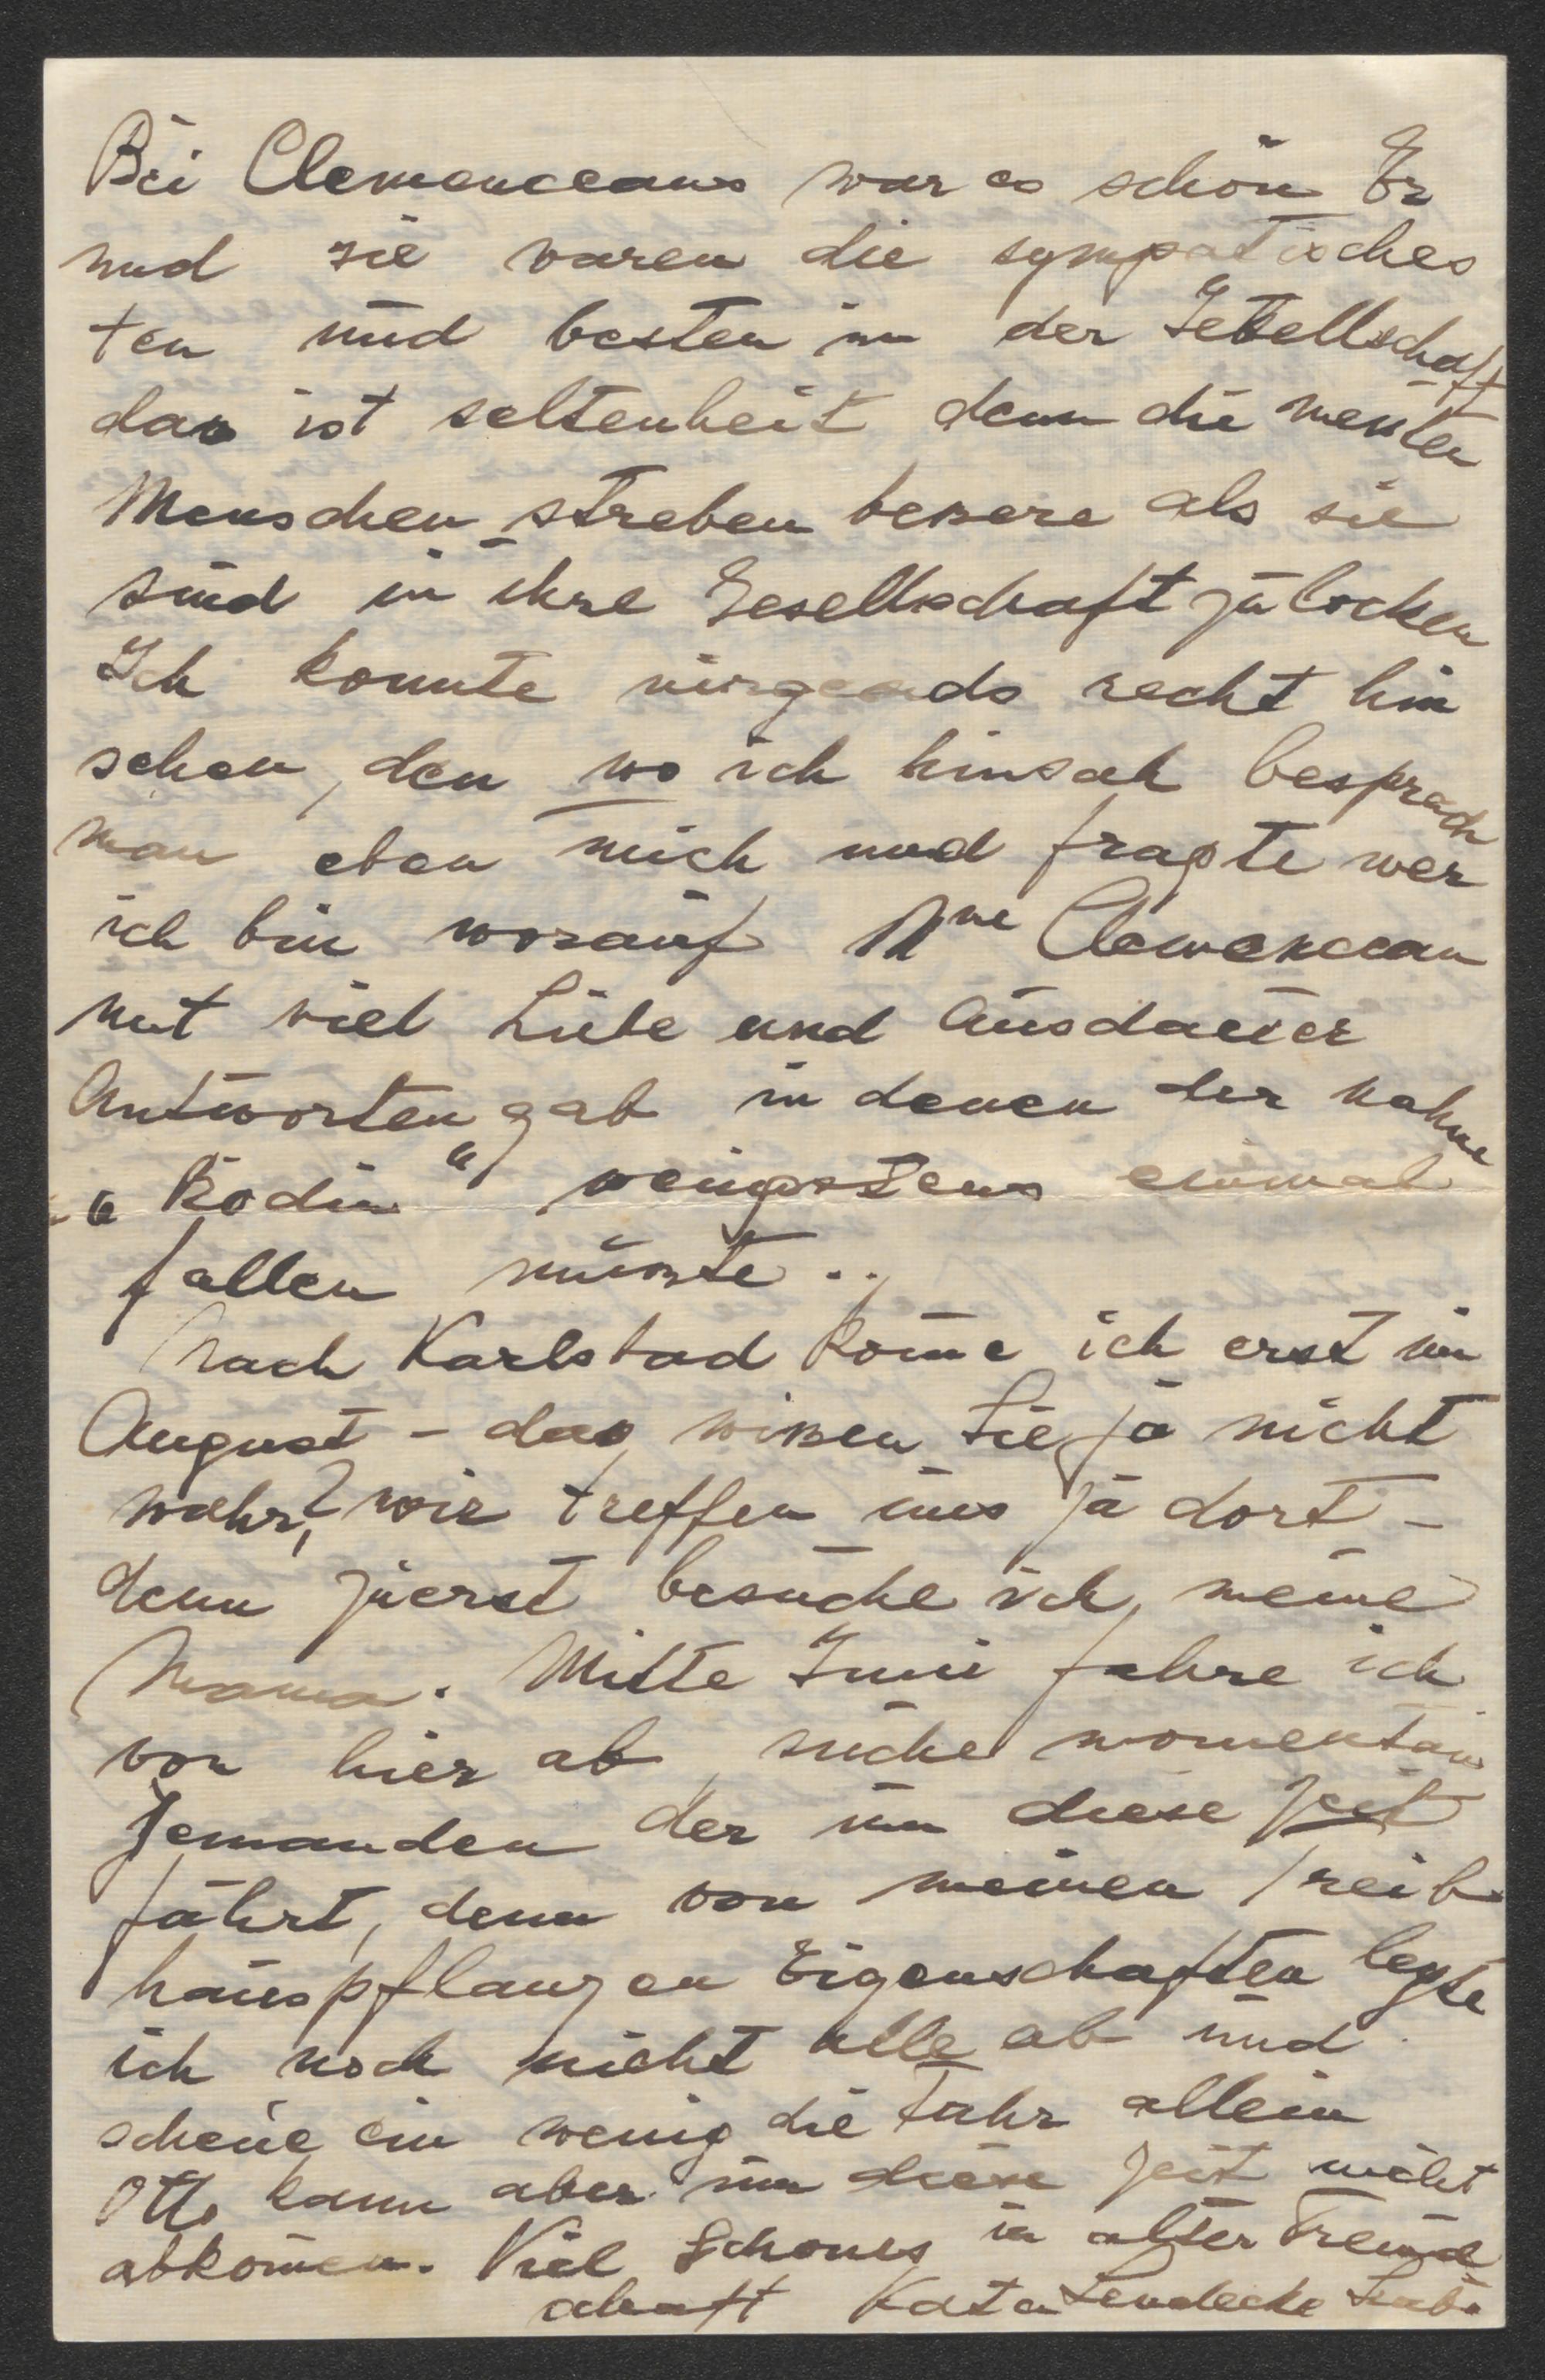 Bei Clemenceaus war es schön Er
und sie waren die sympatisches
ten und besten in der Gesellschaft
das ist seltenheit denn die meisten
Menschen streben bessere als sie
sind in ihre Gesellschaft zu locken
Ich konnte nirgends recht hin
sehen, den wo ich hinsah besprach
man eben mich und fragte wer
ich bin worauf Mme Clemenceau
mit viel Liebe und Ausdauer
Antworten gab in denen der nahme
„Rodin“ wenigstens einmal
fallen müsste..
Nach Karlsbad kom̄e ich erst im
August – das wissen Sie ja nicht
wahr? wir treffen uns ja dort –
denn zuerst besuche ich, meine
Mama. Mitte Juni fahre ich
von hier ab, suche momentan
Jemanden der um diese Zeit
fährt, denn von meinen Treib
hauspflanzen Eigenschaften legte
ich noch nicht alle ab und
scheue ein wenig die Fahr allein
Otto kann aber um diese Zeit nicht
abkom̄en. Viel Schönes in alter Freund
schaft Kata